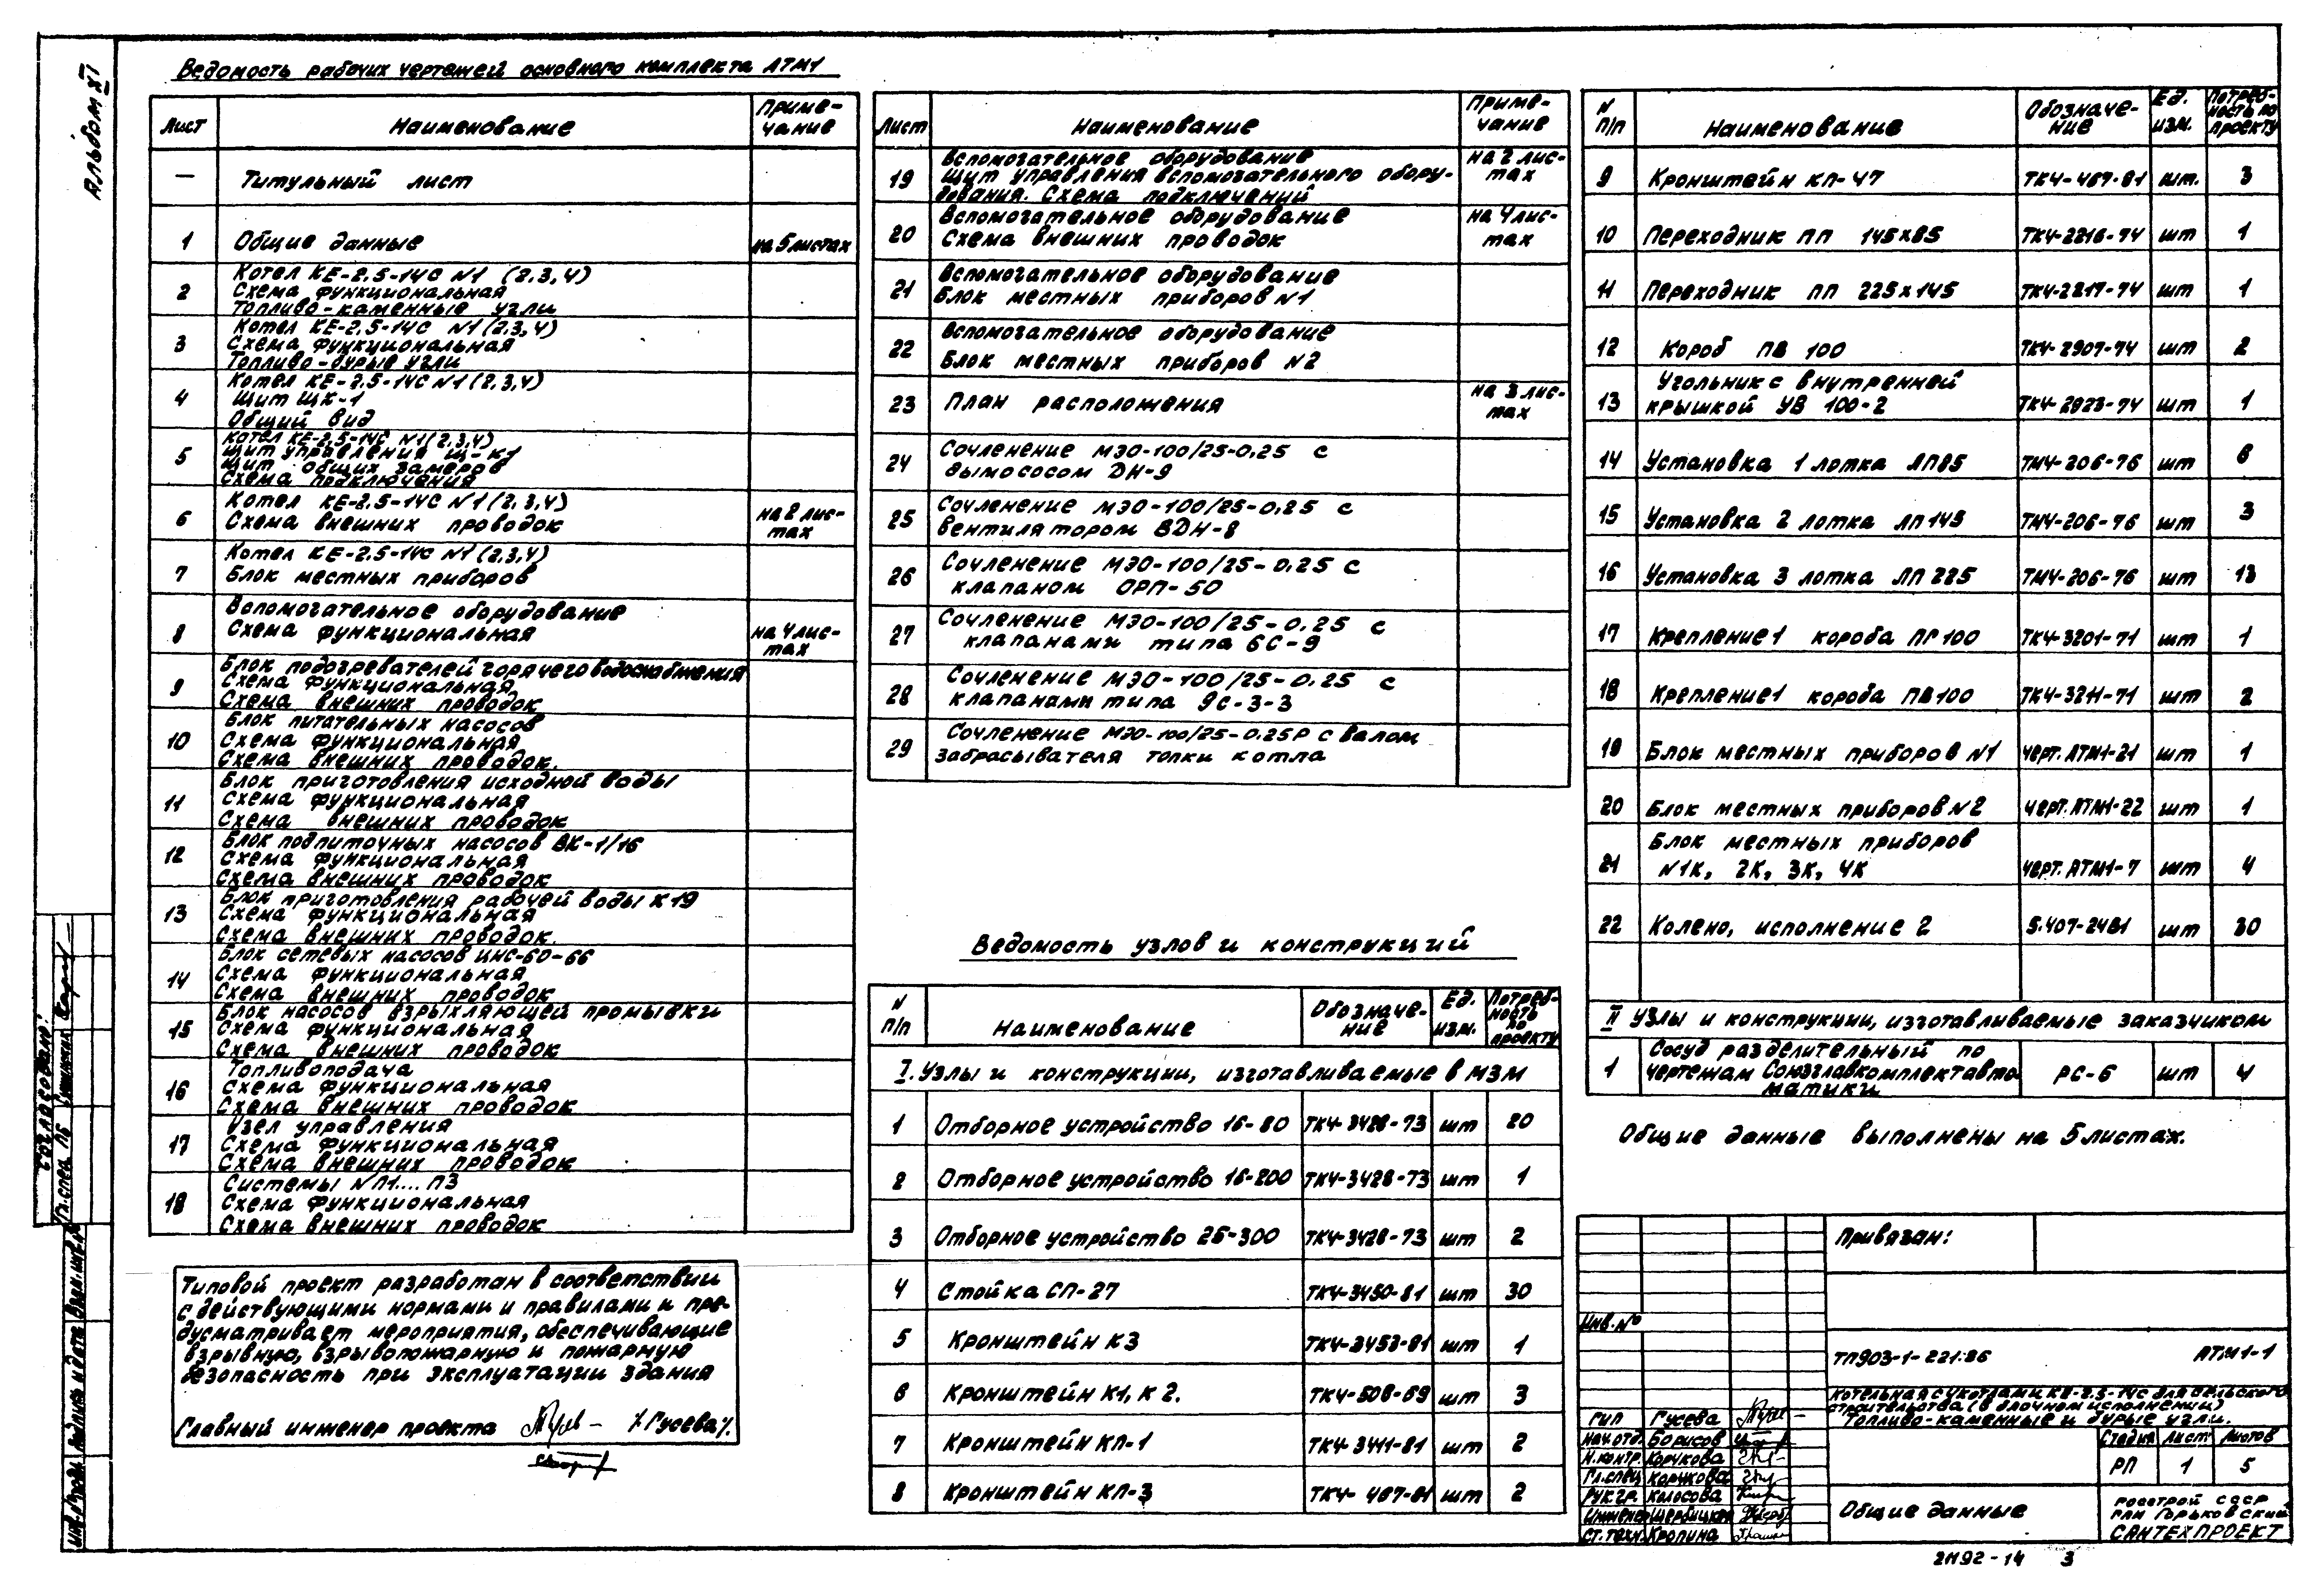 Альбом XI
Ведомость рабочих чертежей основного комплекта АТМ1
Лист Наименование Приме-
чание
— Титульный лист
1 Общие данные на 5 листах
Котел КЕ-2.5-14С №1 (2,3,4)
2 Схема функциональная
Топливо-каменные угли
Котел КЕ-2.5-14С №1 (2,3,4)
3 Схема функциональная
Топливо-бурые угли
Котел КЕ-2.5-14С №1 (2,3,4)
4 Щит ЩК-1
Общий вид
Котел КЕ-2.5-14С №1 (2,3,4)
5 Щит управления Щ-К1
Щит общих замеров
Схема подключения
Котел КЕ-2.5-14С №1 (2,3,4)
6 Схема внешних проводок на 2 лис-
тах
Котел КЕ-2.5-14С №1 (2,3,4)
7 Блок местных приборов
Вспомогательное оборудование
8 Схема функциональная на 4 лис-
тах
Блок подогревателей горячего водоснабжения
9 Схема функциональная
Схема внешних проводок
Блок питательных насосов
10 Схема функциональная
Схема внешних проводок.
Блок приготовления исходной воды
11 Схема функциональная
Схема внешних проводок
Блок подпиточных насосов ВК-1/16
12 Схема функциональная
Схема внешних проводок
Блок приготовления рабочей воды К19
13 Схема функциональная
Схема внешних проводок.
Блок сетевых насосов ЦНС-60-66
14 Схема функциональная
Схема внешних проводок
Блок насосов взрыхляющей промывки
15 Схема функциональная
Схема внешних проводок
Топливоподача
16 Схема функциональная
Схема внешних проводок
Узел управления
17 Схема функциональная
Схема внешних проводок
Системы №П1....П3
18 Схема функциональная
Схема внешних проводок
Типовой проект разработан в соответствии
с действующими нормами и правилами и пре-
дусматривает мероприятия, обеспечивающие
взрывную, взрывопожарную и пожарную
безопасность при эксплуатации здания
Главный инженер проекта /Гусева/.
Лист Наименование Приме-
чание
Вспомогательное оборудование на 2 лис-
19 Щит управления вспомогательного обору- тах
дования. Схема подключений
Вспомогательное оборудование на 4 лис-
20 Схема внешних проводок тах
Вспомогательное оборудование
21 Блок местных приборов №1
Вспомогательное оборудование
22 Блок местных приборов №2
23 План расположения на 3 лис-
тах
24 Сочленение МЭО-100/25-0,25 с
дымососом ДН-9
25 Сочленение МЭО-100/25-0,25 с
вентилятором ВДН-8
26 Сочленение МЭО-100/25-0.25 с
клапаном ОРП-50
27 Сочленение МЭО-100/25-0.25 с
клапанами типа 6С-9
28 Сочленение МЭО-100/25-0.25 с
клапанами типа 9с-3-3
29 Сочленение МЭО-100/25-0.25Р с валом
забрасывателя топки котла
Ведомость узлов и конструкций
N
п/п Наименование Обозначе-
ние Ед.
изм. Потреб-
ность
по
проекту
I. Узлы и конструкции, изготавливаемые в МЗМ
1 Отборное устройство 16-80 ТК4-3428-73 шт 20
2 Отборное устройство 16-200 ТК4-3428-73 шт 1
3 Отборное устройство 25-300 ТК4-3428-73 шт 2
4 Стойка СП-27 ТК4-3450-81 шт 30
5 Кронштейн К3 ТК4-3453-81 шт 1
6 Кронштейн К1, К2. ТК4-506-69 шт 3
7 Кронштейн КП-1 ТК4-3411-81 шт 2
8 Кронштейн КП-3 ТК4-467-81 шт 2
N
п/п Наименование Обозначе-
ние Ед.
изм. Потреб-
ность по
проекту
9 Кронштейн КП-47 ТК4-467-81 шт. 3
10 Переходник ПП 145х85 ТК4-2216-74 шт 1
11 Переходник ПП 225х145 ТК4-2217-74 шт 1
12 Короб ПВ 100 ТК4-2907-74 шт 2
Угольник с внутренней
13 крышкой УВ 100-2 ТК4-2923-74 шт 1
14 Установка 1 лотка ЛП85 ТМ4-206-76 шт 6
15 Установка 2 лотка ЛП145 ТМ4-206-76 шт 3
16 Установка 3 лотка ЛП 225 ТМ4-206-76 шт 13
17 Крепление 1 короба ПГ100 ТК4-3201-71 шт 1
18 Крепление 1 короба ПВ100 ТК4-3211-71 шт 2
19 Блок местных приборов №1 черт. АТМ1-21 шт 1
20 Блок местных приборов №2 черт. АТМ1-22 шт 1
Блок местных приборов
21 №1К, 2К, 3К, 4К черт. АТМ1-7 шт 4
22 Колено, исполнение 2 5.407-24В1 шт 30
II Узлы и конструкции, изготавливаемые заказчиком
Сосуд разделительный по
1 чертежам Союзглавкомплектавто- РС-6 шт 4
матики
Общие данные выполнены на 5 листах.
Привязан:
Инв. №
ТП903-1-221.86 АТМ1-1
Котельная с 4 котлами КЕ-2.5-14С для сельского
строительства (в блочном исполнении)
Топливо-каменные и бурые угли.
ГИП Гусева
Нач.отд. Борисов
Н.контр. Корчкова
Гл.спец Корчкова
Рук.гр. Колосова
Инженер Щербицкая
Ст.техн. Кропина
Стадия Лист Листов
РП 1 5
Общие данные
Госстрой СССР
ГПИ Горьковский
САНТЕХПРОЕКТ
21192-14 3
Согласовано:
Гл.спец. ПБ
Инв.№ подл. Подпись и дата Взам.инв.№